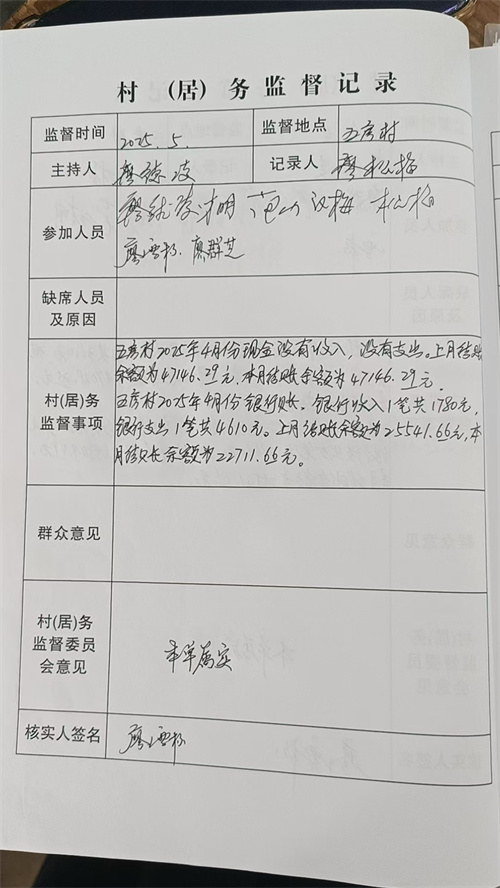 村（居）务监督记录
监督时间 2025.5. 监督地点 五房村
主持人 廖 记录人 廖松梅
参加人员
廖雪松.廖群芝
缺席人员
及原因
五房村2025年4月份现金没有收入，没有支出。上月结账
余额为47146.29元，本月结账余额为47146.29元。
村(居)务
监督事项
五房村2025年4月份银行账。银行收入1笔共1780元，
银行支出1笔共4610元。上月结账余额为25541.66元，本
月结账余额为22711.66元。
群众意见
村(居)务
监督委员
会意见
本单属实
核实人签名 廖雪松